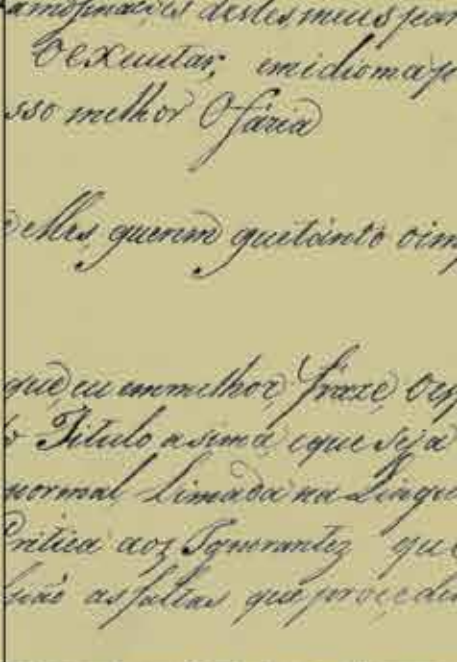 destes meus par
O exuutar, em idioma p
sso melhor O faria
elles querem que tanto o im
que eu em melhor fraze, O exp
o Titulo asima e que seja
normal Limada na Lingu
Critica aoz Ignorantez que
as faltas que proçeder